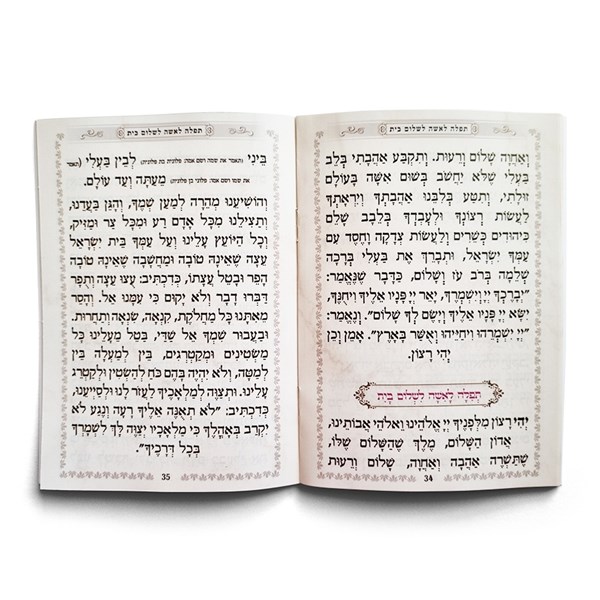 תפלה לאשה לשלום בית
וְאַחֲוָה שָׁלוֹם וְרֵעוּת. וְתִקְבַּע אַהֲבָתִי בְּלֵב
בַּעְלִי שֶׁלֹּא יַחְשֹׁב בְּשׁוּם אִשָּׁה בָּעוֹלָם
זוּלָתִי, וְתִטַּע בְּלִבֵּנוּ אַהֲבָתְךָ וְיִרְאָתְךָ
לַעֲשׂוֹת רְצוֹנְךָ וּלְעָבְדְּךָ בְּלֵבָב שָׁלֵם
כִּיהוּדִים כְּשֵׁרִים וְלַעֲשׂוֹת צְדָקָה וָחֶסֶד עִם
עַמְּךָ יִשְׂרָאֵל, וּתְבָרֵךְ אֶת בַּעְלִי בְּרָכָה
שְׁלֵמָה בְּרֹב עֹז וְשָׁלוֹם, כַּדָּבָר שֶׁנֶּאֱמַר:
"יְבָרֶכְךָ יְיָ וְיִשְׁמְרֶךָ, יָאֵר יְיָ פָּנָיו אֵלֶיךָ וִיחֻנֶּךָּ,
יִשָּׂא יְיָ פָּנָיו אֵלֶיךָ וְיָשֵׂם לְךָ שָׁלוֹם". וְנֶאֱמַר:
"יְיָ יִשְׁמְרֵהוּ וִיחַיֵּהוּ וְאֻשַּׁר בָּאָרֶץ". אָמֵן וְכֵן
יְהִי רָצוֹן.
תְּפִלָּה לְאִשָּׁה לִשְׁלוֹם בַּיִת
יְהִי רָצוֹן מִלְּפָנֶיךָ יְיָ אֱלֹהֵינוּ וֵאלֹהֵי אֲבוֹתֵינוּ,
אֲדוֹן הַשָּׁלוֹם, מֶלֶךְ שֶׁהַשָּׁלוֹם שֶׁלּוֹ,
שֶׁתַּשְׁרֶה אַהֲבָה וְאַחֲוָה, שָׁלוֹם וְרֵעוּת
34
תפלה לאשה לשלום בית
בֵּינִי (תאמר את שמה ושם אמה: פלונית בת פלונית) לְבֵין בַּעְלִי (תאמר
את שמו ושם אמו: פלוני בן פלונית) מֵעַתָּה וְעַד עוֹלָם.
וְהוֹשִׁיעֵנוּ מְהֵרָה לְמַעַן שְׁמֶךָ, וְהָגֵן בַּעֲדֵנוּ,
וְתַצִּילֵנוּ מִכָּל אָדָם רַע וּמִכָּל צַר וּמַזִּיק,
וְכָל הַיּוֹעֵץ עָלֵינוּ וְעַל עַמְּךָ בֵּית יִשְׂרָאֵל
עֵצָה שֶׁאֵינָהּ טוֹבָה וּמַחֲשָׁבָה שֶׁאֵינָהּ טוֹבָה
הָפֵר וּבַטֵּל עֲצָתוֹ, כְּדִכְתִיב: עֻצוּ עֵצָה וְתֻפָר
דַּבְּרוּ דָבָר וְלֹא יָקוּם כִּי עִמָּנוּ אֵל. וְהָסֵר
מֵאִתָּנוּ כָּל מַחֲלֹקֶת, קִנְאָה, שִׂנְאָה וְתַחֲרוּת.
וּבַעֲבוּר שִׁמְךָ אֵל שַׁדַּי, בַּטֵּל מֵעָלֵינוּ כָּל
מַשְׂטִינִים וּמְקַטְרְגִים, בֵּין לְמַעְלָה בֵּין
לְמַטָּה, וְלֹא יִהְיֶה בָּהֶם כֹּחַ לְהַשְׂטִין וּלְקַטְרֵג
עָלֵינוּ. וּתְצַוֶּה לְמַלְאָכֶיךָ לַעֲזוֹר לָנוּ וּלְסַיְּיעֵנוּ,
כְּדִכְתִיב: "לֹא תְאֻנֶּה אֵלֶיךָ רָעָה וְנֶגַע לֹא
יִקְרַב בְּאָהֳלֶךָ כִּי מַלְאָכָיו יְצַוֶּה לָּךְ לִשְׁמָרְךָ
בְּכָל דְּרָכֶיךָ".
35